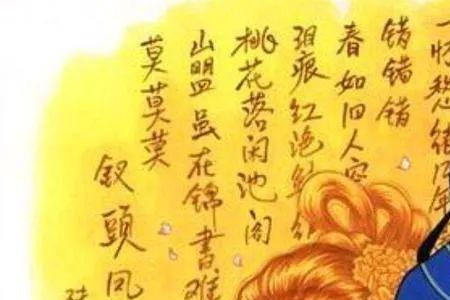 一怀愁绪几年
错错错
春如旧人空
泪痕红浥
桃花落闲池阁
山盟虽在锦书难
莫莫莫
钗頭凤